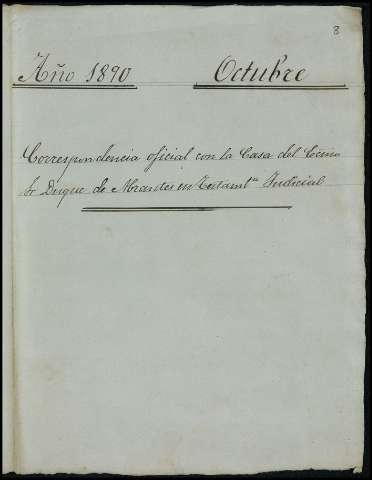 8
Año 1890 Octubre
Correspondencia oficial con la Casa del Excmo
Sr Duque de Abrantes en Testamtª Judicial